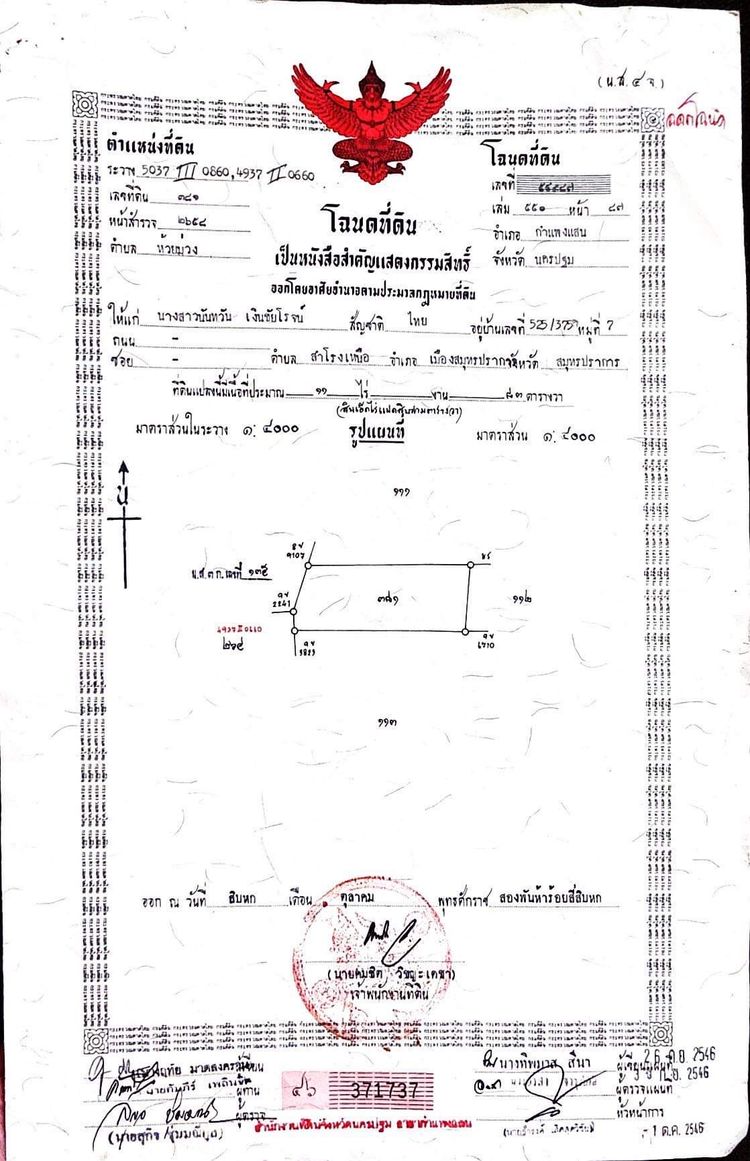 (น.ส.๔ จ)
ตำแหน่งที่ดิน
ระวาง 5037 III 0860, 4937 II 0660
เลขที่ดิน ๓๘๑
หน้าสำรวจ ๒๖๕๘
ตำบล ห้วยม่วง
โฉนดที่ดิน
เลขที่
เล่ม ๕๕๐ หน้า ๘๗
อำเภอ กำแพงแสน
จังหวัด นครปฐม
โฉนดที่ดิน
เป็นหนังสือสำคัญแสดงกรรมสิทธิ์
ออกโดยอาศัยอำนาจตามประมวลกฎหมายที่ดิน
ให้แก่ นางสาวนันทวัน เงินชัยโรจน์ สัญชาติ ไทย อยู่บ้านเลขที่ 525/375 หมู่ที่ 7
ถนน -
ซอย - ตำบล สำโรงเหนือ อำเภอ เมืองสมุทรปราการ จังหวัด สมุทรปราการ
ที่ดินแปลงนี้มีเนื้อที่ประมาณ ๑๑ ไร่ - งาน ๘๓ ตารางวา
(สิบเอ็ดไร่แปดสิบสามตารางวา)
มาตราส่วนในระวาง ๑: ๔๐๐๐ รูปแผนที่ มาตราส่วน ๑: ๔๐๐๐
น
๑๑๑
น.ส.๓ ก. เลขที่ ๑๓๕
๓๘๑
๑๑๒
๑๑๓
ออก ณ วันที่ สิบหก เดือน ตุลาคม พุทธศักราช สองพันห้าร้อยสี่สิบหก
เจ้าพนักงานที่ดิน
นางทิพมาส สีนา
ผู้ตรวจแผนที่
หัวหน้าการ
ผู้ทาน
ผู้ตรวจ
371737
สำนักงานที่ดินจังหวัดนครปฐม สาขากำแพงแสน
26 ก.ย. 2546
- 1 ต.ค. 2546